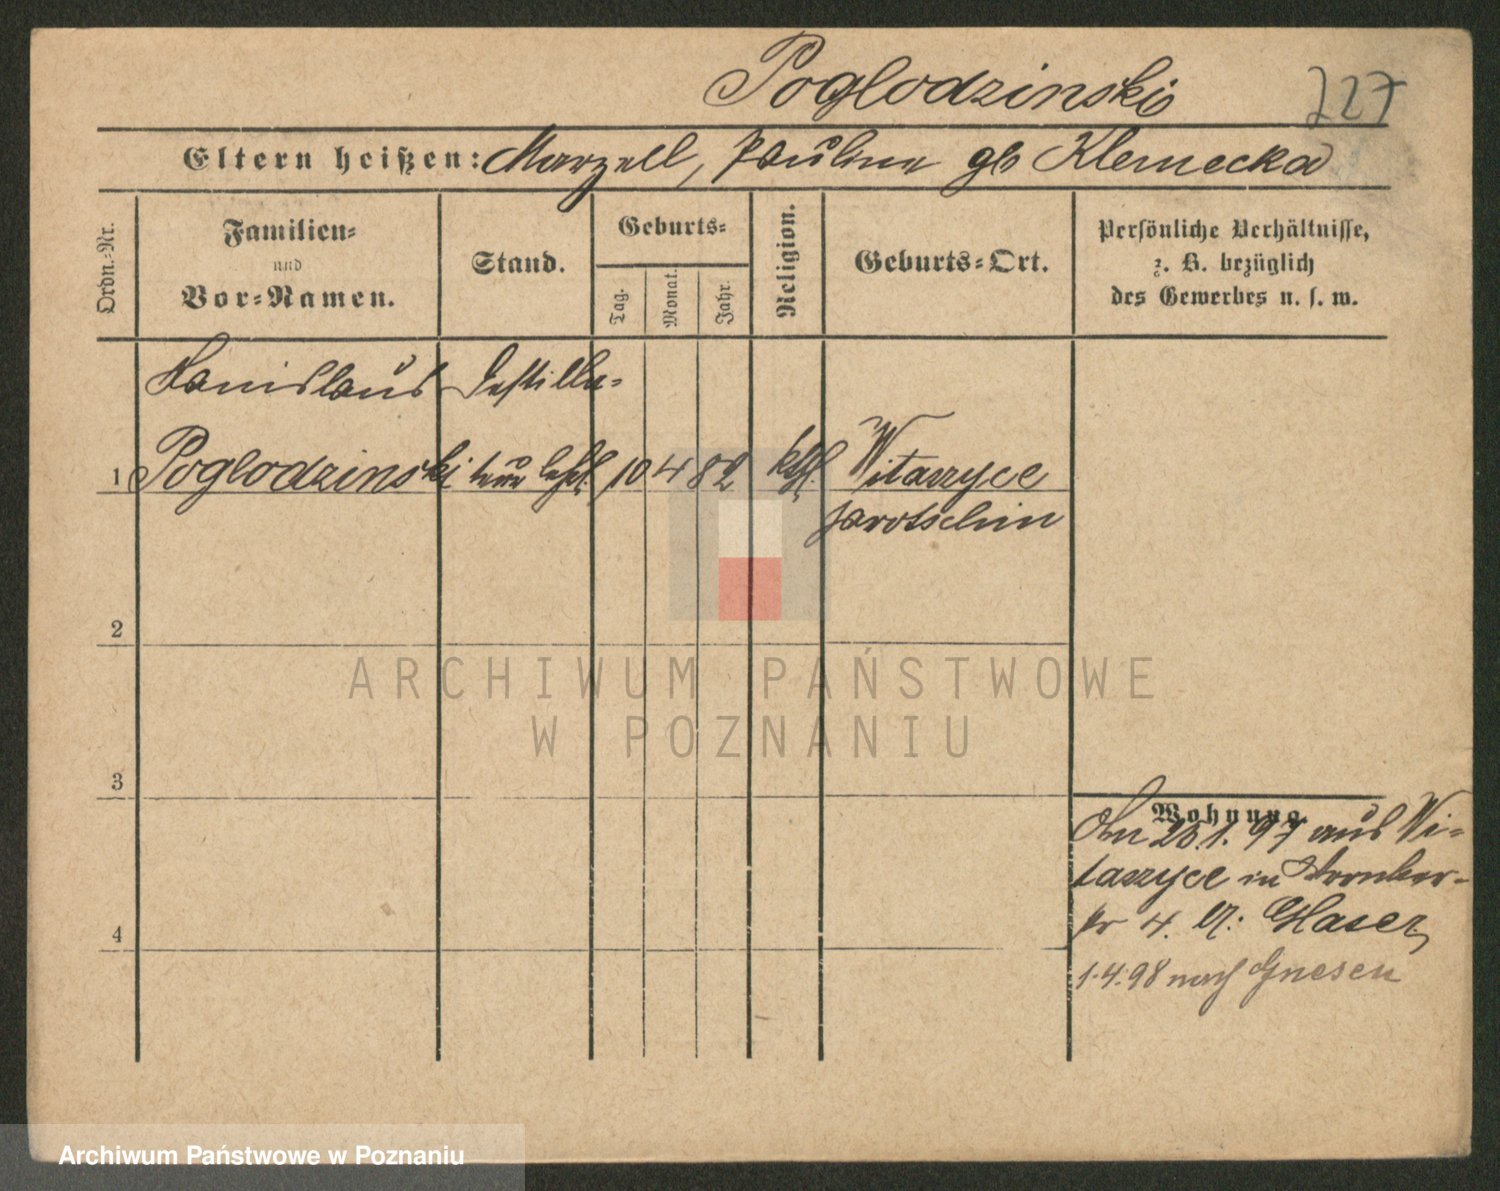 Poglodzinski
727
Eltern heißen: Marzell, Pauline gb Klemecka
Ordn.-Nr.
Familien-
und
Vor-Namen.
Stand.
Geburts-
Tag.
Monat.
Jahr.
Religion.
Geburts-Ort.
Persönliche Verhältnisse,
z. B. bezüglich
des Gewerbes u. s. w.
Stanislaus Destilla-
1 Poglodzinski teur 10 4 82 kth. Witaszyce
Jarotschin
2
ARCHIWUM PAŃSTWOWE
W POZNANIU
3
Wohnung.
1. 97 aus Wi-
taszyce in
4. Glaser
4
1.4.98 nach Gnesen
Archiwum Państwowe w Poznaniu